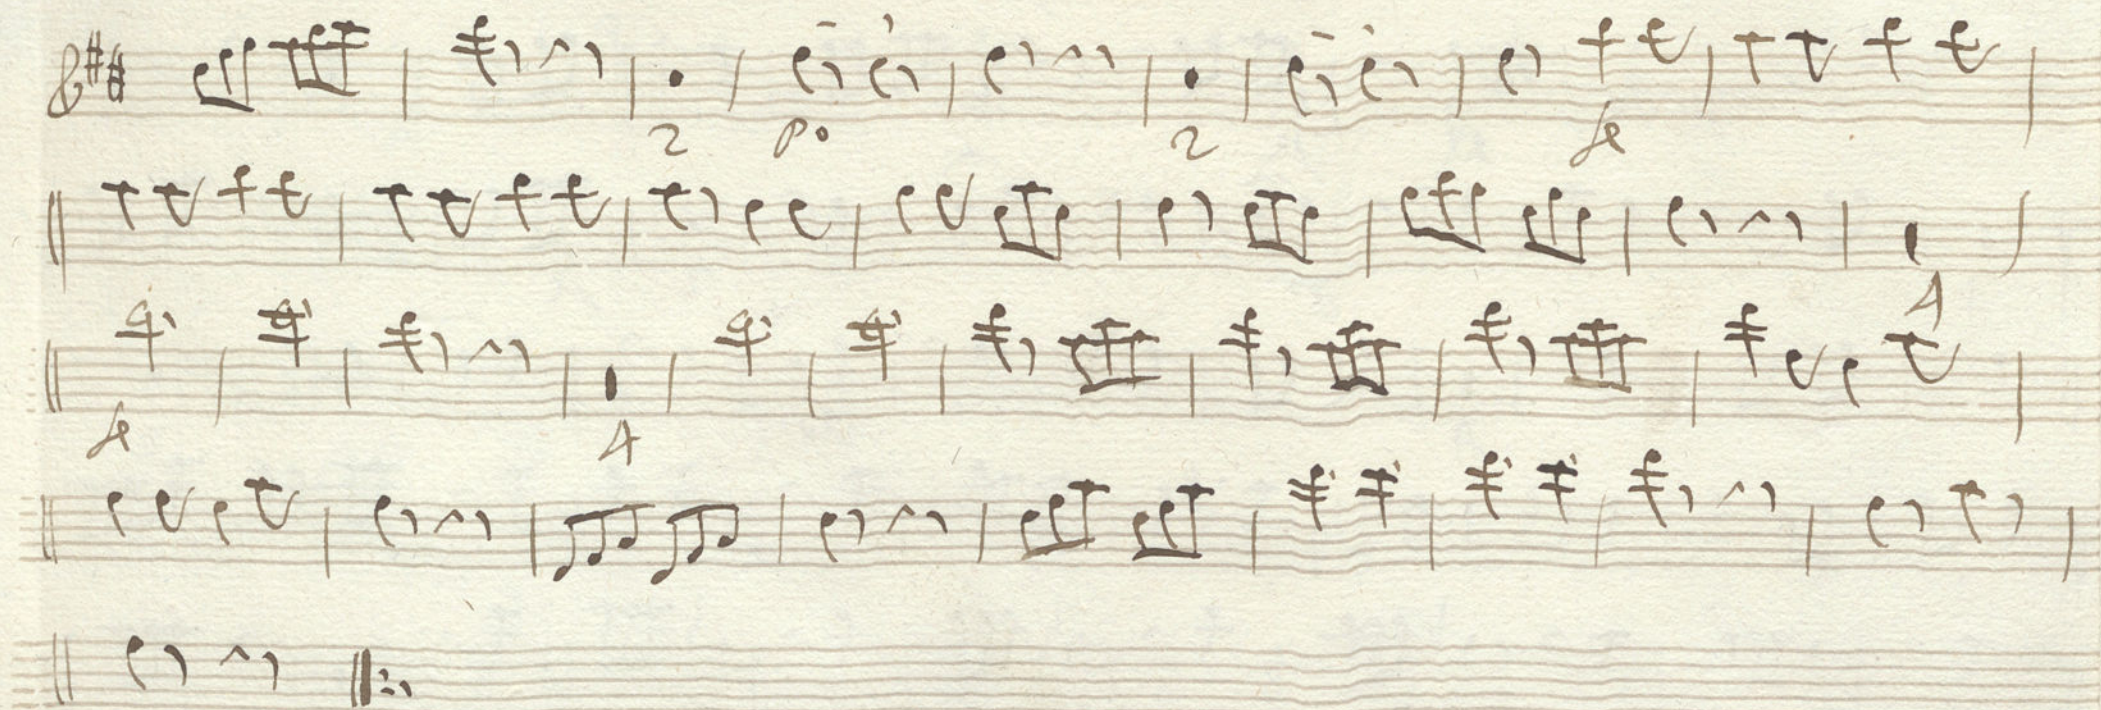 2 po 2 f
4
f 4